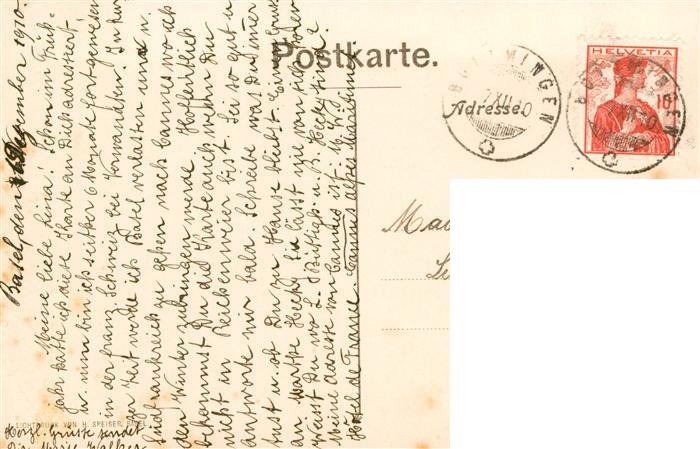 Postkarte.
Adresse.
HELVETIA
10
BINNINGEN
7.XII.10
BINNINGEN
XII.10
Mad
Basel, den Dezember 1910.
Meine liebe Lina! Schon im Früh-
jahr hatte ich diese Karte an Dich adressiert
u. nun bin ich seither 6 Monate fort gewesen
in der franz. Schweiz bei Verwandten. In kur-
zer Zeit werde ich Basel verlassen und n.
Südfrankreich zu gehen nach Cannes wo ich
den Winter zubringen werde. Hoffentlich
bekommst Du die Karte auch wenn Du
nicht in Reichenweier bist. Sei so gut u
antworte mir bald. Schreibe was Du immer
tust u. ob Du zu Hause bleibst. Einen Gruss
an Marthe Hecky.
weisst Du wo L. u. B. Hecky sind?
Meine Adresse von Cannes ist: M. W.
Hôtel de France Cannes alpes maritimes
LICHTDRUCK VON H. SPEISER, BASEL
Herzl. Grüsse sendet
Dir Marie Walker